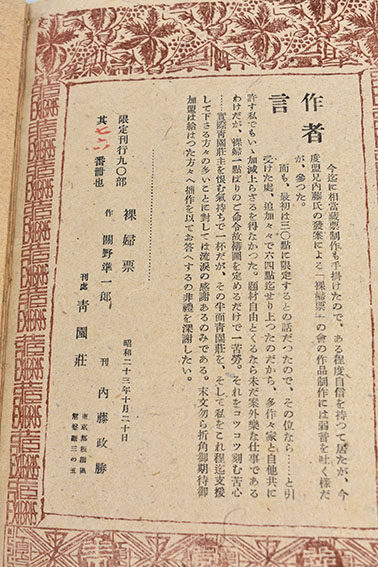 作者言
今迄に相当蔵票制作も手掛けたので、ある程度自信を持つて居たが、今
度盟兄内藤氏の発案による「裸婦票」の会の作品制作には弱音を吐く様だ
が、参つた。
而も、最初は三〇点に限定するとの話だつたので、その位なら……と引
受けた処、追加々々で六四点迄せり上つたのだから、多作々家と自他共に
許す私でもいゝ加減上らざるを得なかつた。題材自由とくるたら未だ案外楽な仕事である
わけだが、裸婦一点ばりのご命令故構図を定めるだけで一苦労。それをコツコツ刻む苦心
……実際青園荘主を恨む気持で一杯だが、その半面青園荘を、そして私をこれ程迄支援
して下さる方々の多いことに対しては流涙の感謝あるのみである。末文勿ら折角御期待御
加盟は給はつた方々へ拙作を以てお答へするの非礼を深謝したい。
昭和二十三年十月二十日
裸婦票
作 関野準一郎
刊 内藤政勝
限定刊行九〇部
其七六番冊也
刊処 青園荘
東京都板橋区
常盤台三の五
EXLIBRIS